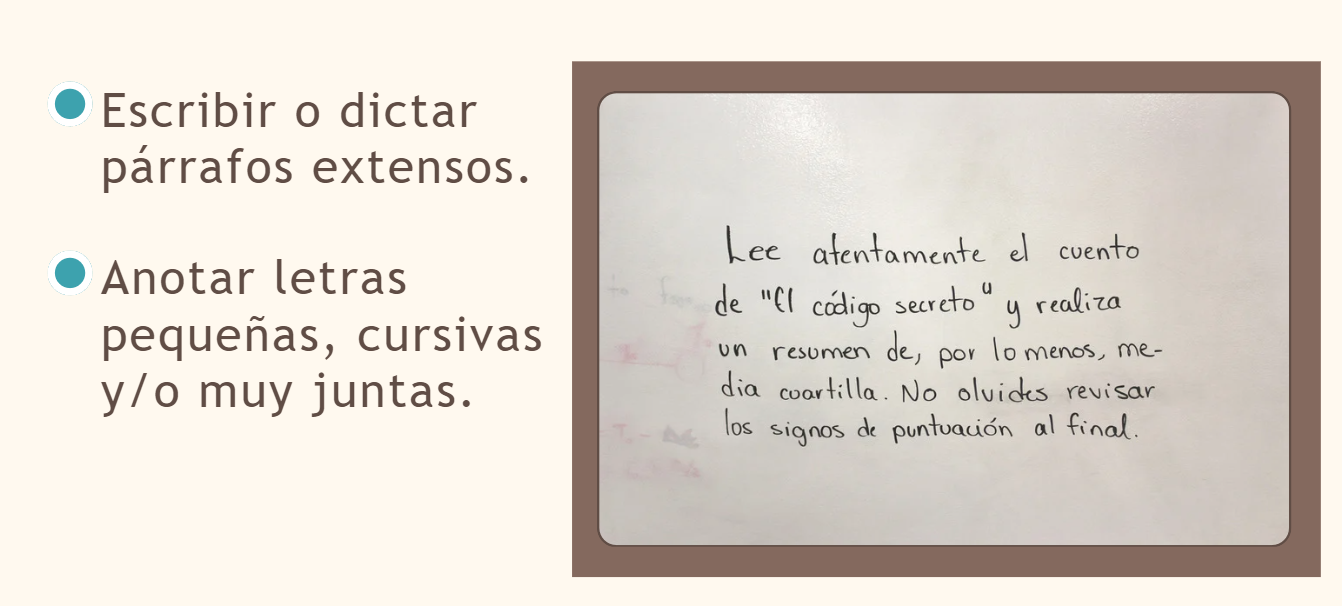 Escribir o dictar
párrafos extensos.
Anotar letras
pequeñas, cursivas
y/o muy juntas.
Lee atentamente el cuento
de "El código secreto" y realiza
un resumen de, por lo menos, me-
dia cuartilla. No olvides revisar
los signos de puntuación al final.